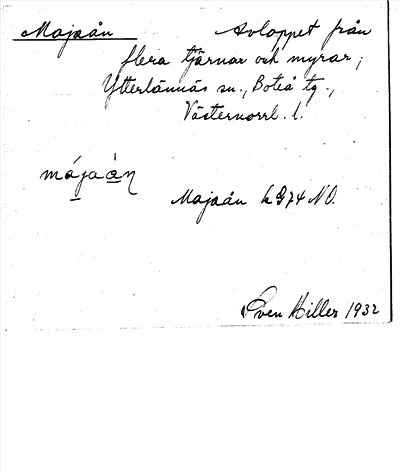 Majaån Avloppet från
flera tjärnar och myrar;
Ytterlännäs sn., Boteå tg.,
Västernorrl. l.
májaà̲n
Majaån k G74 NO.
Sven Hiller 1932